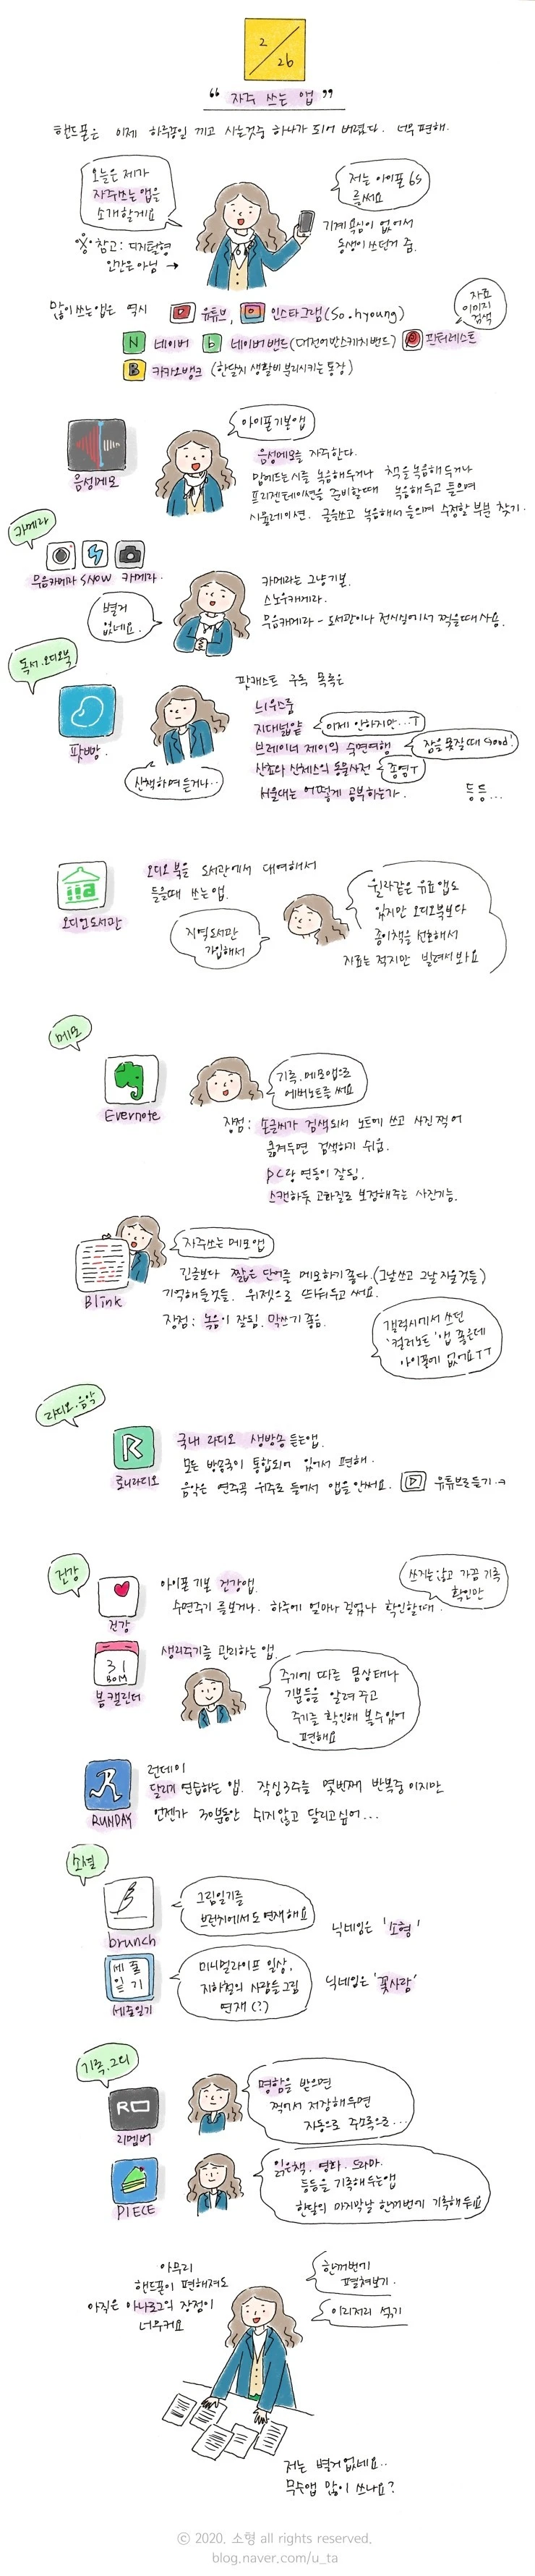 2/26
“ 자주 쓰는 앱 ”
핸드폰은 이제 하루종일 끼고 사는것중 하나가 되어 버렸다. 너무 편해.
오늘은 제가
자주쓰는 앱을
소개할게요
※참고 : 디지털형
인간은 아님 →
저는 아이폰 6S
를 써요
기계 욕심이 없어서
동생이 쓰던거 줌.
많이 쓰는앱은 역시 유튜브, 인스타그램(So.hyoung)
자료
이미지
검색
N 네이버 b 네이버밴드(대전어반스케치밴드) 핀터레스트
B 카카오뱅크 (한달치 생활비 분리시키는 통장)
음성메모
아이폰기본앱
음성메모를 자주한다.
맘에드는 시를 녹음해두거나 책을 녹음해 두거나
프리젠테이션을 준비할때 녹음해두고 들으며
시뮬레이션. 글을쓰고 녹음해서 들으며 수정할 부분 찾기.
카메라
무음카메라 SNOW 카메라.
별거
없네요.
카메라는 그냥기본.
스노우카메라.
무음카메라 - 도서관이나 전시실에서 찍을때 사용.
독서.오디오북
팟빵.
산책하며 듣거나..
팟캐스트 구독 목록은
뇌우스룸
지대넓얕 이제 안하지만...T
브레이너 제이의 숙면여행 잠을 못잘때 Good!
산초와 신체스의 동물사전 종영T
서울대는 어떻게 공부하는가. 등등...
오디언도서관
오디오북을 도서관에서 대여해서
들을때 쓰는 앱.
지역도서관
가입해서
윌라같은 유료앱도
있지만 오디오북보다
종이책을 선호해서
자료는 적지만 빌려서 봐요
메모
Evernote
기록.메모앱으로
에버노트를 써요
장점 : 손글씨가 검색되서 노트에 쓰고 사진 찍어
옮겨두면 검색하기 쉬움.
PC랑 연동이 잘됨.
스캔하듯 고화질로 보정해주는 사진기능.
Blink
자주쓰는메모앱
긴글보다 짧은 단어를 메모하기 좋다.(그날쓰고 그날 지울것들)
기억해둘것들. 위젯으로 띄워두고 써요.
장점 : 녹음이 잘됨. 막쓰기 좋음.
갤럭시에서 쓰던
'컬러노트'앱 좋은데
아이폰에 없어요TT
라디오.음악
R
로니라디오
국내 라디오 생방송 듣는앱.
모든 방송국이 통합되어 있어서 편해.
음악은 연주곡 위주로 들어서 앱을 안써요. 유튜브로 듣기→
건강
건강
아이폰 기본 건강앱.
수면주기를 보거나. 하루에 얼마나 걸었나 확인할때.
쓰지는 않고 가끔 기록
확인만
31
BOM
봄캘린더
생리주기를 관리하는 앱.
주기에 따른 몸상태나
기분등을 알려 주고
주기를 확인해 볼수있어
편해요
RUNDAY
런데이
달리기 연습하는 앱. 작심3주를 몇번째 반복중 이지만
언젠가 30분동안 쉬지않고 달리고싶어...
소셜
brunch
그림일기를
브런치에서도 연재해요
닉네임은 '소형'
세줄
일기
세줄일기
미니멀라이프 일상,
지하철의 사람들 그림
연재(?)
닉네임은 '꽃사람'
기록.그외
리멤버
명함을 받으면
찍어서 저장해두면
자동으로 주소록으로...
PIECE
읽은책. 영화. 드라마.
등등을 기록해두는앱
한달의 마지막날 한꺼번에 기록해둬요
아무리
핸드폰이 편해져도
아직은 아나로그의 장점이
너무커요
한꺼번에
펼쳐보기.
이리저리 섞기
저는 별거없네요..
무슨앱 많이 쓰나요?
ⓒ 2020. 소형 all rights reserved.
blog.naver.com/u_ta